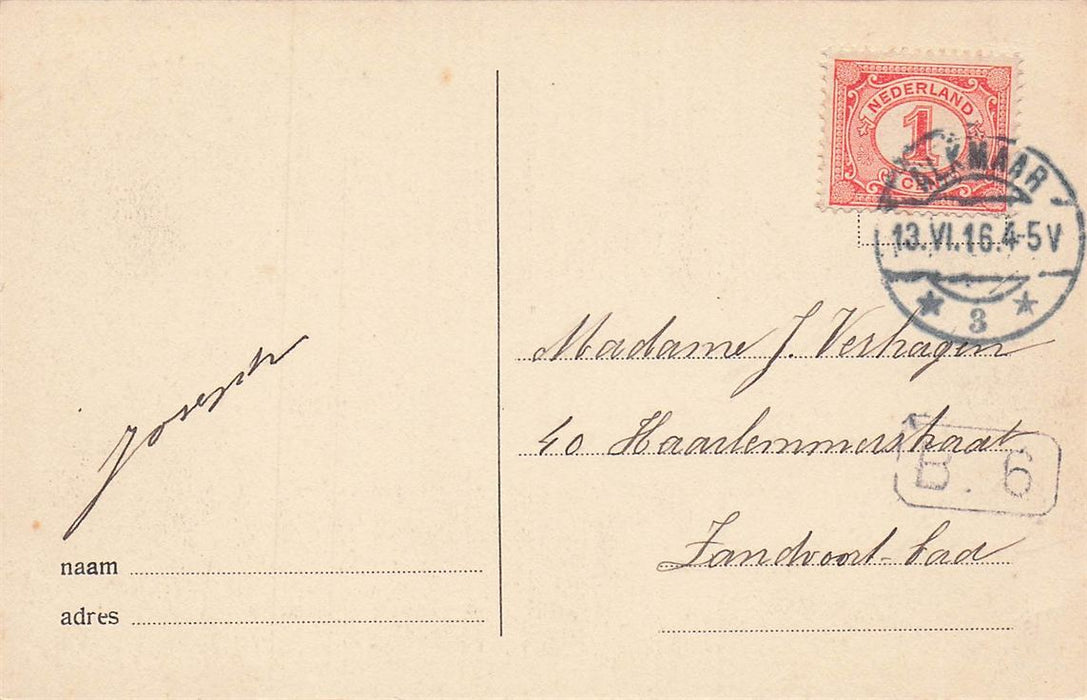 NEDERLAND
1
CENT
ALKMAAR
13.VI.16.4-5V
3
Madame J. Verhagen
40 Haarlemmerstraat
B. 6
Zandvoort-bad
Joseph
naam
adres